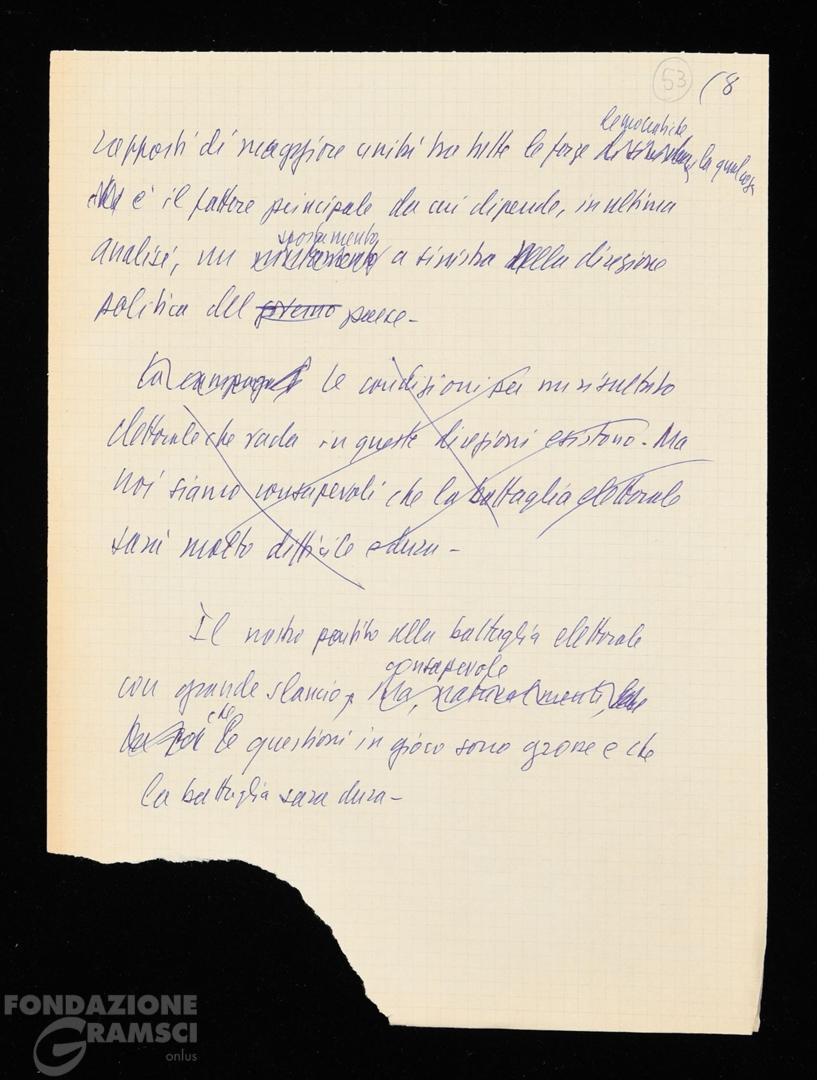 53 (8
democratiche
rapporti di maggiore unità tra tutte le forze di sinistra, la qual cosa
è il fattore principale da cui dipende, in ultima
spostamento
analisi, un mutamento a sinistra della direzione
politica del governo paese-
La campagna le condizioni per un risultato
elettorale che vada in queste direzioni esistono. Ma
noi siamo consapevoli che la battaglia elettorale
sarà molto difficile e dura-
Il nostro partito alla battaglia elettorale
consapevole
con grande slancio, Ma, naturalmente,
che
le questioni in gioco sono grosse e che
la battaglia sara dura-
FONDAZIONE
GRAMSCI
onlus